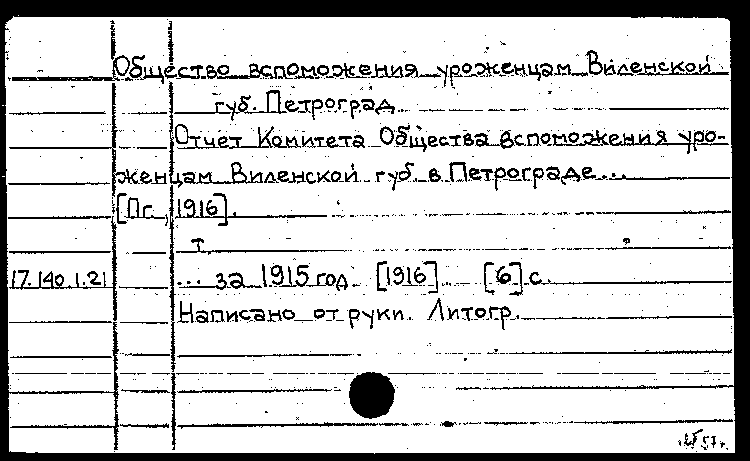 Общество вспоможения уроженцам Виленской
губ. Петроград
Отчет Комитета Общества вспоможения уро-
женцам Виленской губ. в Петрограде...
[Пг., 1916].
т.
17.140.1.21 ... за 1915 год. [1916]. [6] с.
Написано от руки. Литогр.
57 г.